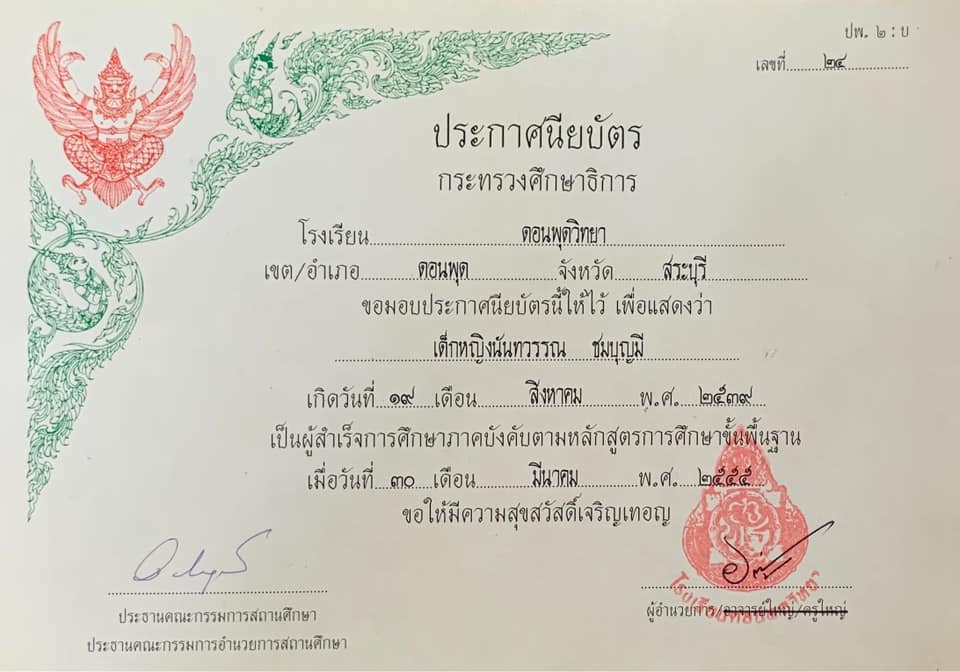 ปพ. ๒ : บ
เลขที่ ๒๔
ประกาศนียบัตร
กระทรวงศึกษาธิการ
โรงเรียน ดอนพุดวิทยา
เขต/อำเภอ ดอนพุด จังหวัด สระบุรี
ขอมอบประกาศนียบัตรนี้ให้ไว้ เพื่อแสดงว่า
เด็กหญิงนันทวรรณ ชมบุญมี
เกิดวันที่ ๑๙ เดือน สิงหาคม พ.ศ. ๒๕๓๙
เป็นผู้สำเร็จการศึกษาภาคบังคับตามหลักสูตรการศึกษาขั้นพื้นฐาน
เมื่อวันที่ ๓๐ เดือน มีนาคม พ.ศ. ๒๕๕๕
ขอให้มีความสุขสวัสดิ์เจริญเทอญ
ประธานคณะกรรมการสถานศึกษา
ประธานคณะกรรมการอำนวยการสถานศึกษา
โรงเรียนดอนพุดวิทยา
ผู้อำนวยการ/อาจารย์ใหญ่/ครูใหญ่